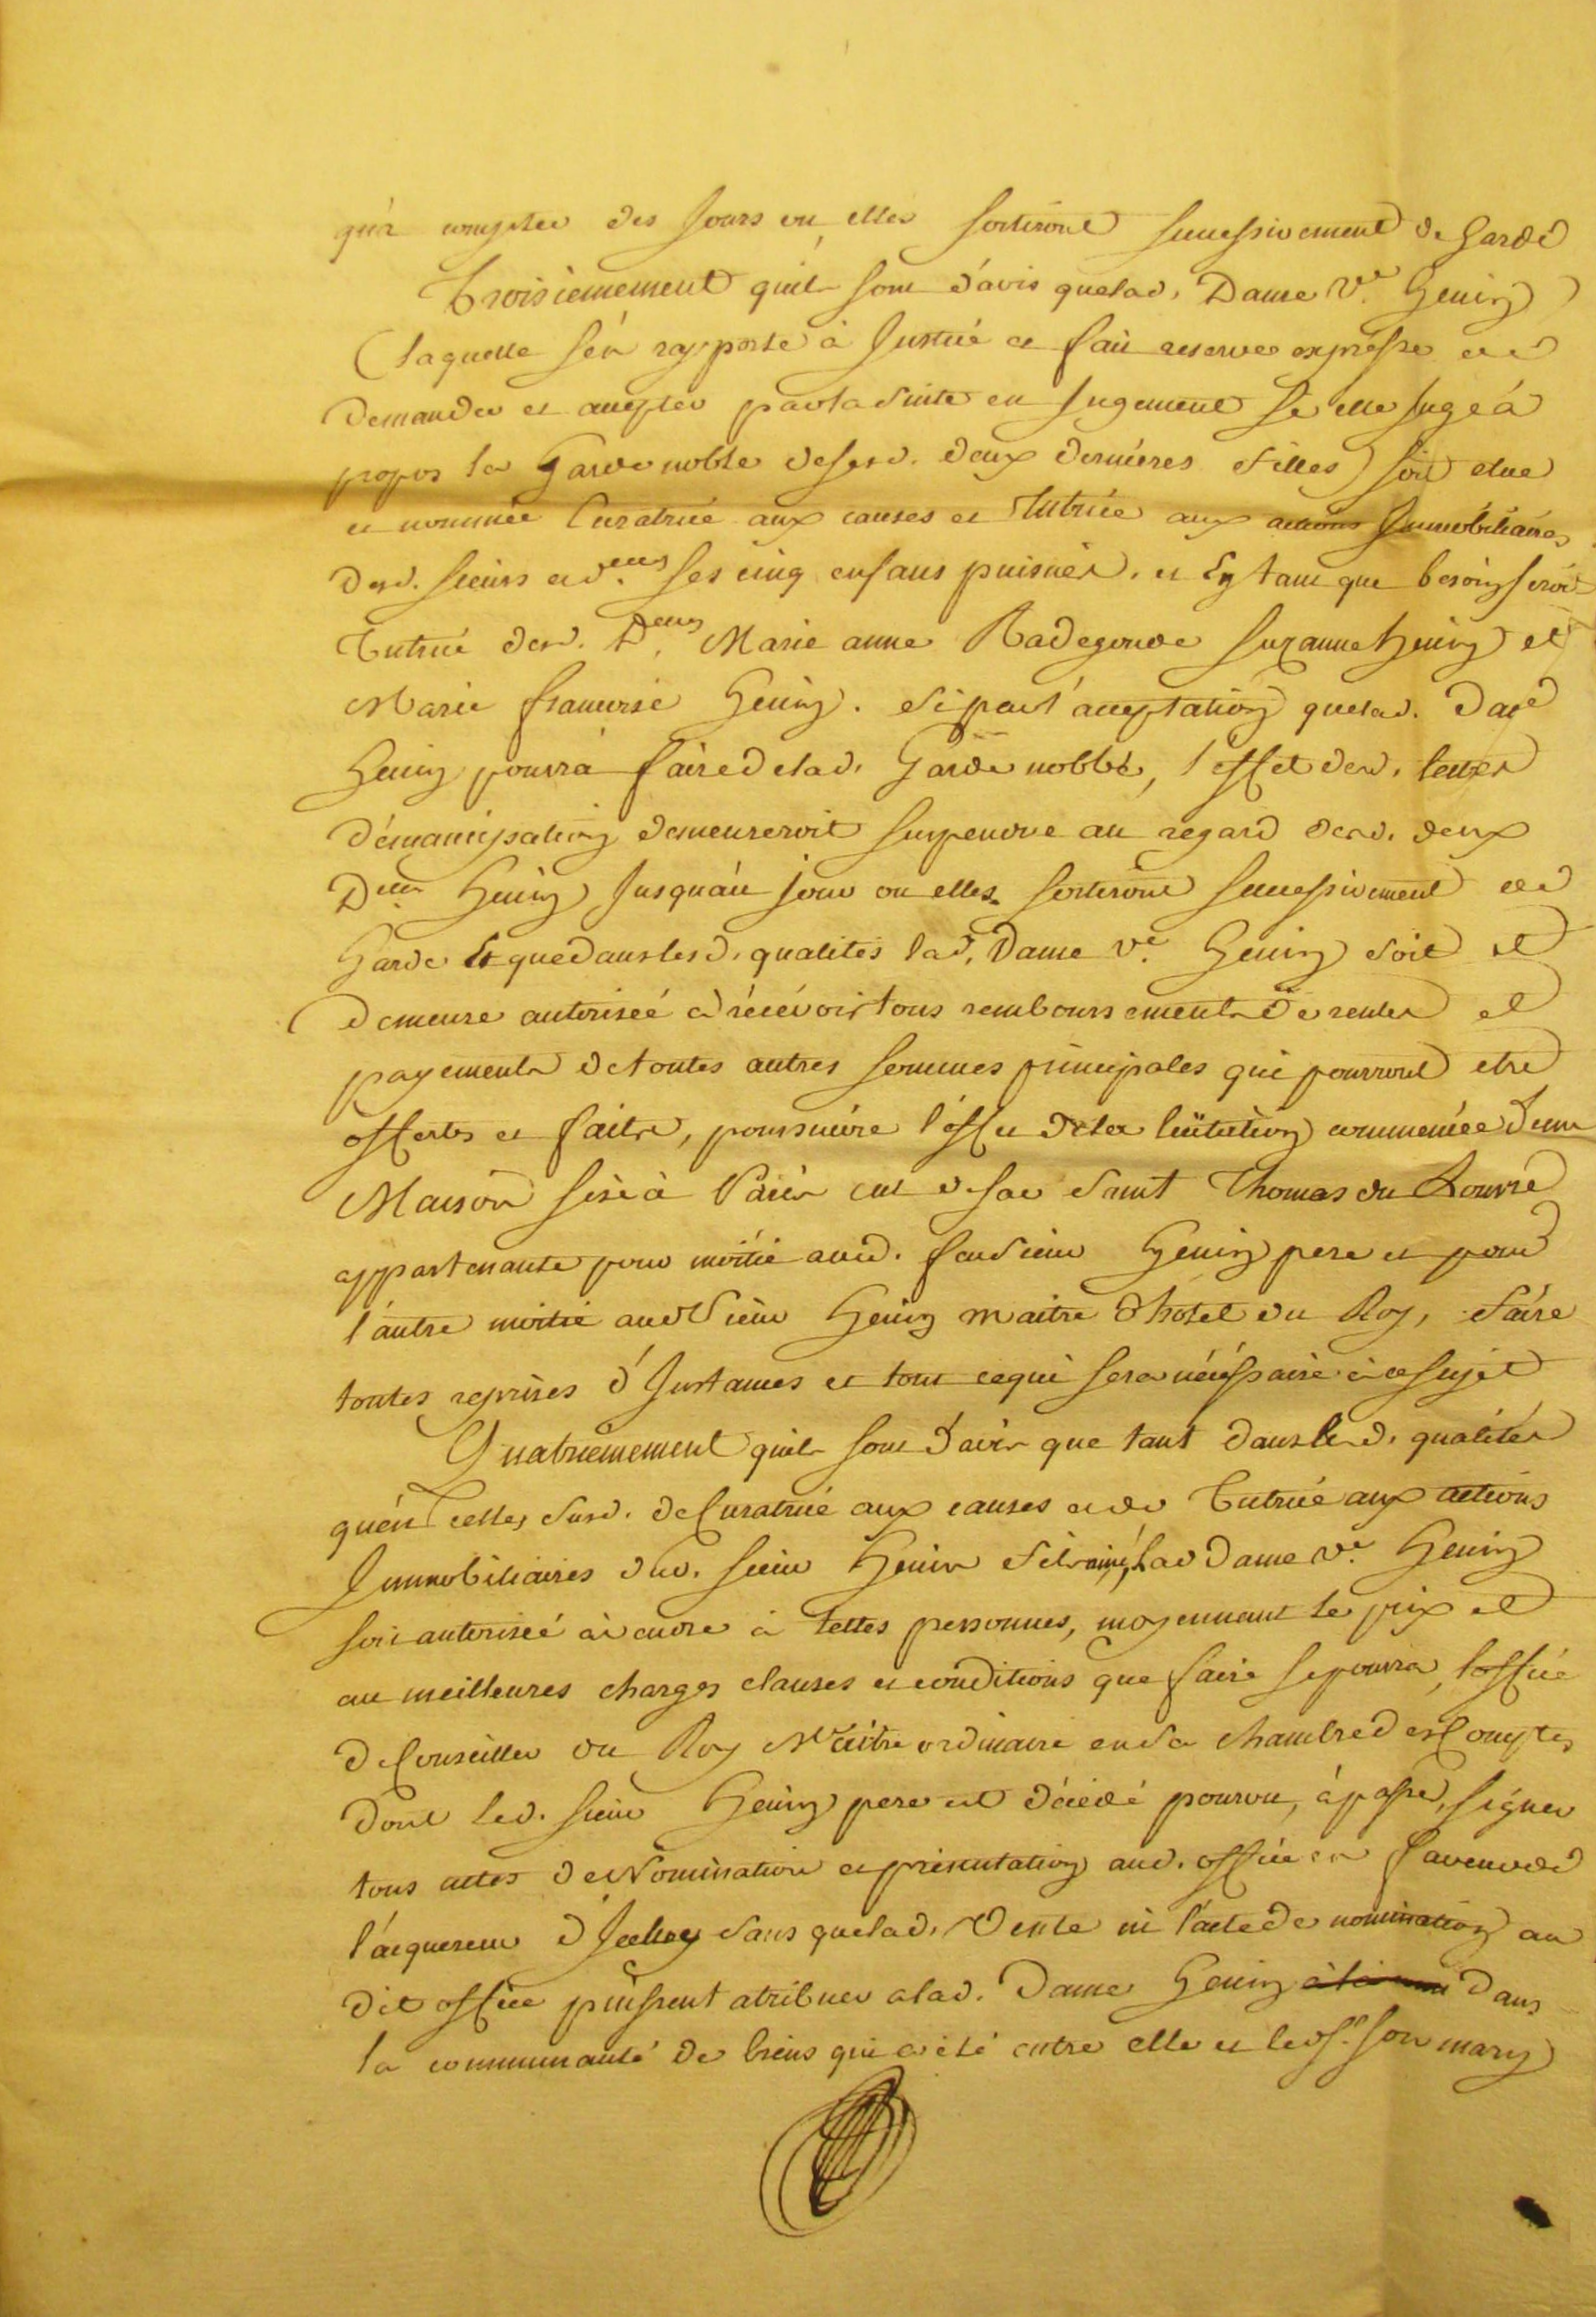 qu'à compter des Jours ou elles sortiront successivement de Garde
Troisiemement quils sont d'avis que lad. Dame Ve. Henin
(laquelle s'en rapporte à Justice et fait reserve expresse de
demander et accepter par la suite en Jugement si elle juge à
propos la Garde noble desesd. deux dernieres filles) soit elue
et nommée Curatrice aux causes et Tutrice aux actions Immobiliaires
desd. sieurs et delles ses cinq enfans puisnés. et En tant que besoin seroit
Tutrice desd. Delles Marie anne Radegonde Suzanne henin et
Marie francoise Henin. si par l'acceptation que lad. Dame
Henin pourra faire de lad. Garde noble, l'effet desd. lettres
d'emancipation demeureroit suspendue au regard desd. deux
Delles Henin Jusqu'au jour ou elles sortiront successivement de
Garde Et que dans lesd. qualités lad. Dame Ve. Henin soit et
demeure autorisée à récévoir tous remboursements de rentes et
payements de toutes autres sommes principales qui pourront etre
offerts et faits, poursuivre l'effet de la licitation commencée d'une
Maison sise à Paris cul de sac Saint Thomas du Louvre
appartenante pour moitié aud. feu sieur Henin pere et pour
l'autre moitié aud Sieur Henin maitre d'hotel du Roy, faire
toutes reprises d'Instances et tout cequi sera nécéssaire à ce sujet
Quatriemement quils sont d'avis que tant dans lesd. qualités
qu'en celles susd. de Curatrice aux causes et de Tutrice aux actions
Immobiliaires dud. sieur Henin fils ainé, Lad Dame Ve. Henin
soit autorisée à vendre à telles personnes, moyennant le prix et
au meilleures charges clauses et conditions que faire se pourra, l'office
de Conseiller du Roy Maitre ordinaire en sa chambre des Comptes
dont led. sieur Henin pere est décédé pourvu, à passer, signer
tous actes de Nomination et présentation aud. office en faveur de
l'acquereur d'Icelluy sans que lad. Vente ni l'acte de nomination au
dit office puissent atribuer a lad. Dame Henin dans
la communauté de biens qui a été entre elle et led Sr. son mary